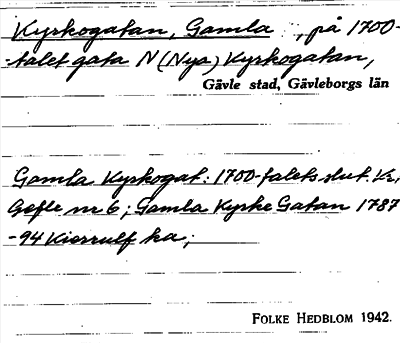 Kyrkogatan, Gamla, på 1700-
-talet gata N (Nya) Kyrkogatan,
Gävle stad, Gävleborgs län
Gamla Kyrkogat.: 1700-talets slut. Kr,
Gefle nr 6; Gamla Kyrke Gatan 1787
-94 Kiörrulf ka;
FOLKE HEDBLOM 1942.